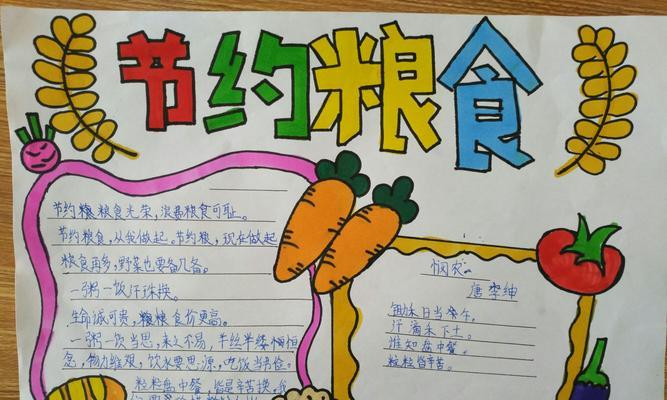 节约粮食
节约粮粮食光荣，浪费粮食可耻。
节约粮食，从我做起。节约粮，现在做起
粮食再多，野菜也要备几备。
一粥一饭汗珠换。
生命诚可贵，粮粮食价更高。
一粥一饭当思，来之不易，半丝半缕恒恒
念，物力维艰，饮水要思源，吃饭当节俭。
粒粒盘中餐，皆是辛苦换。我
悯农
唐 李绅
锄禾日当午，
汗滴禾下土。
谁知盘中餐。
粒粒皆辛苦。